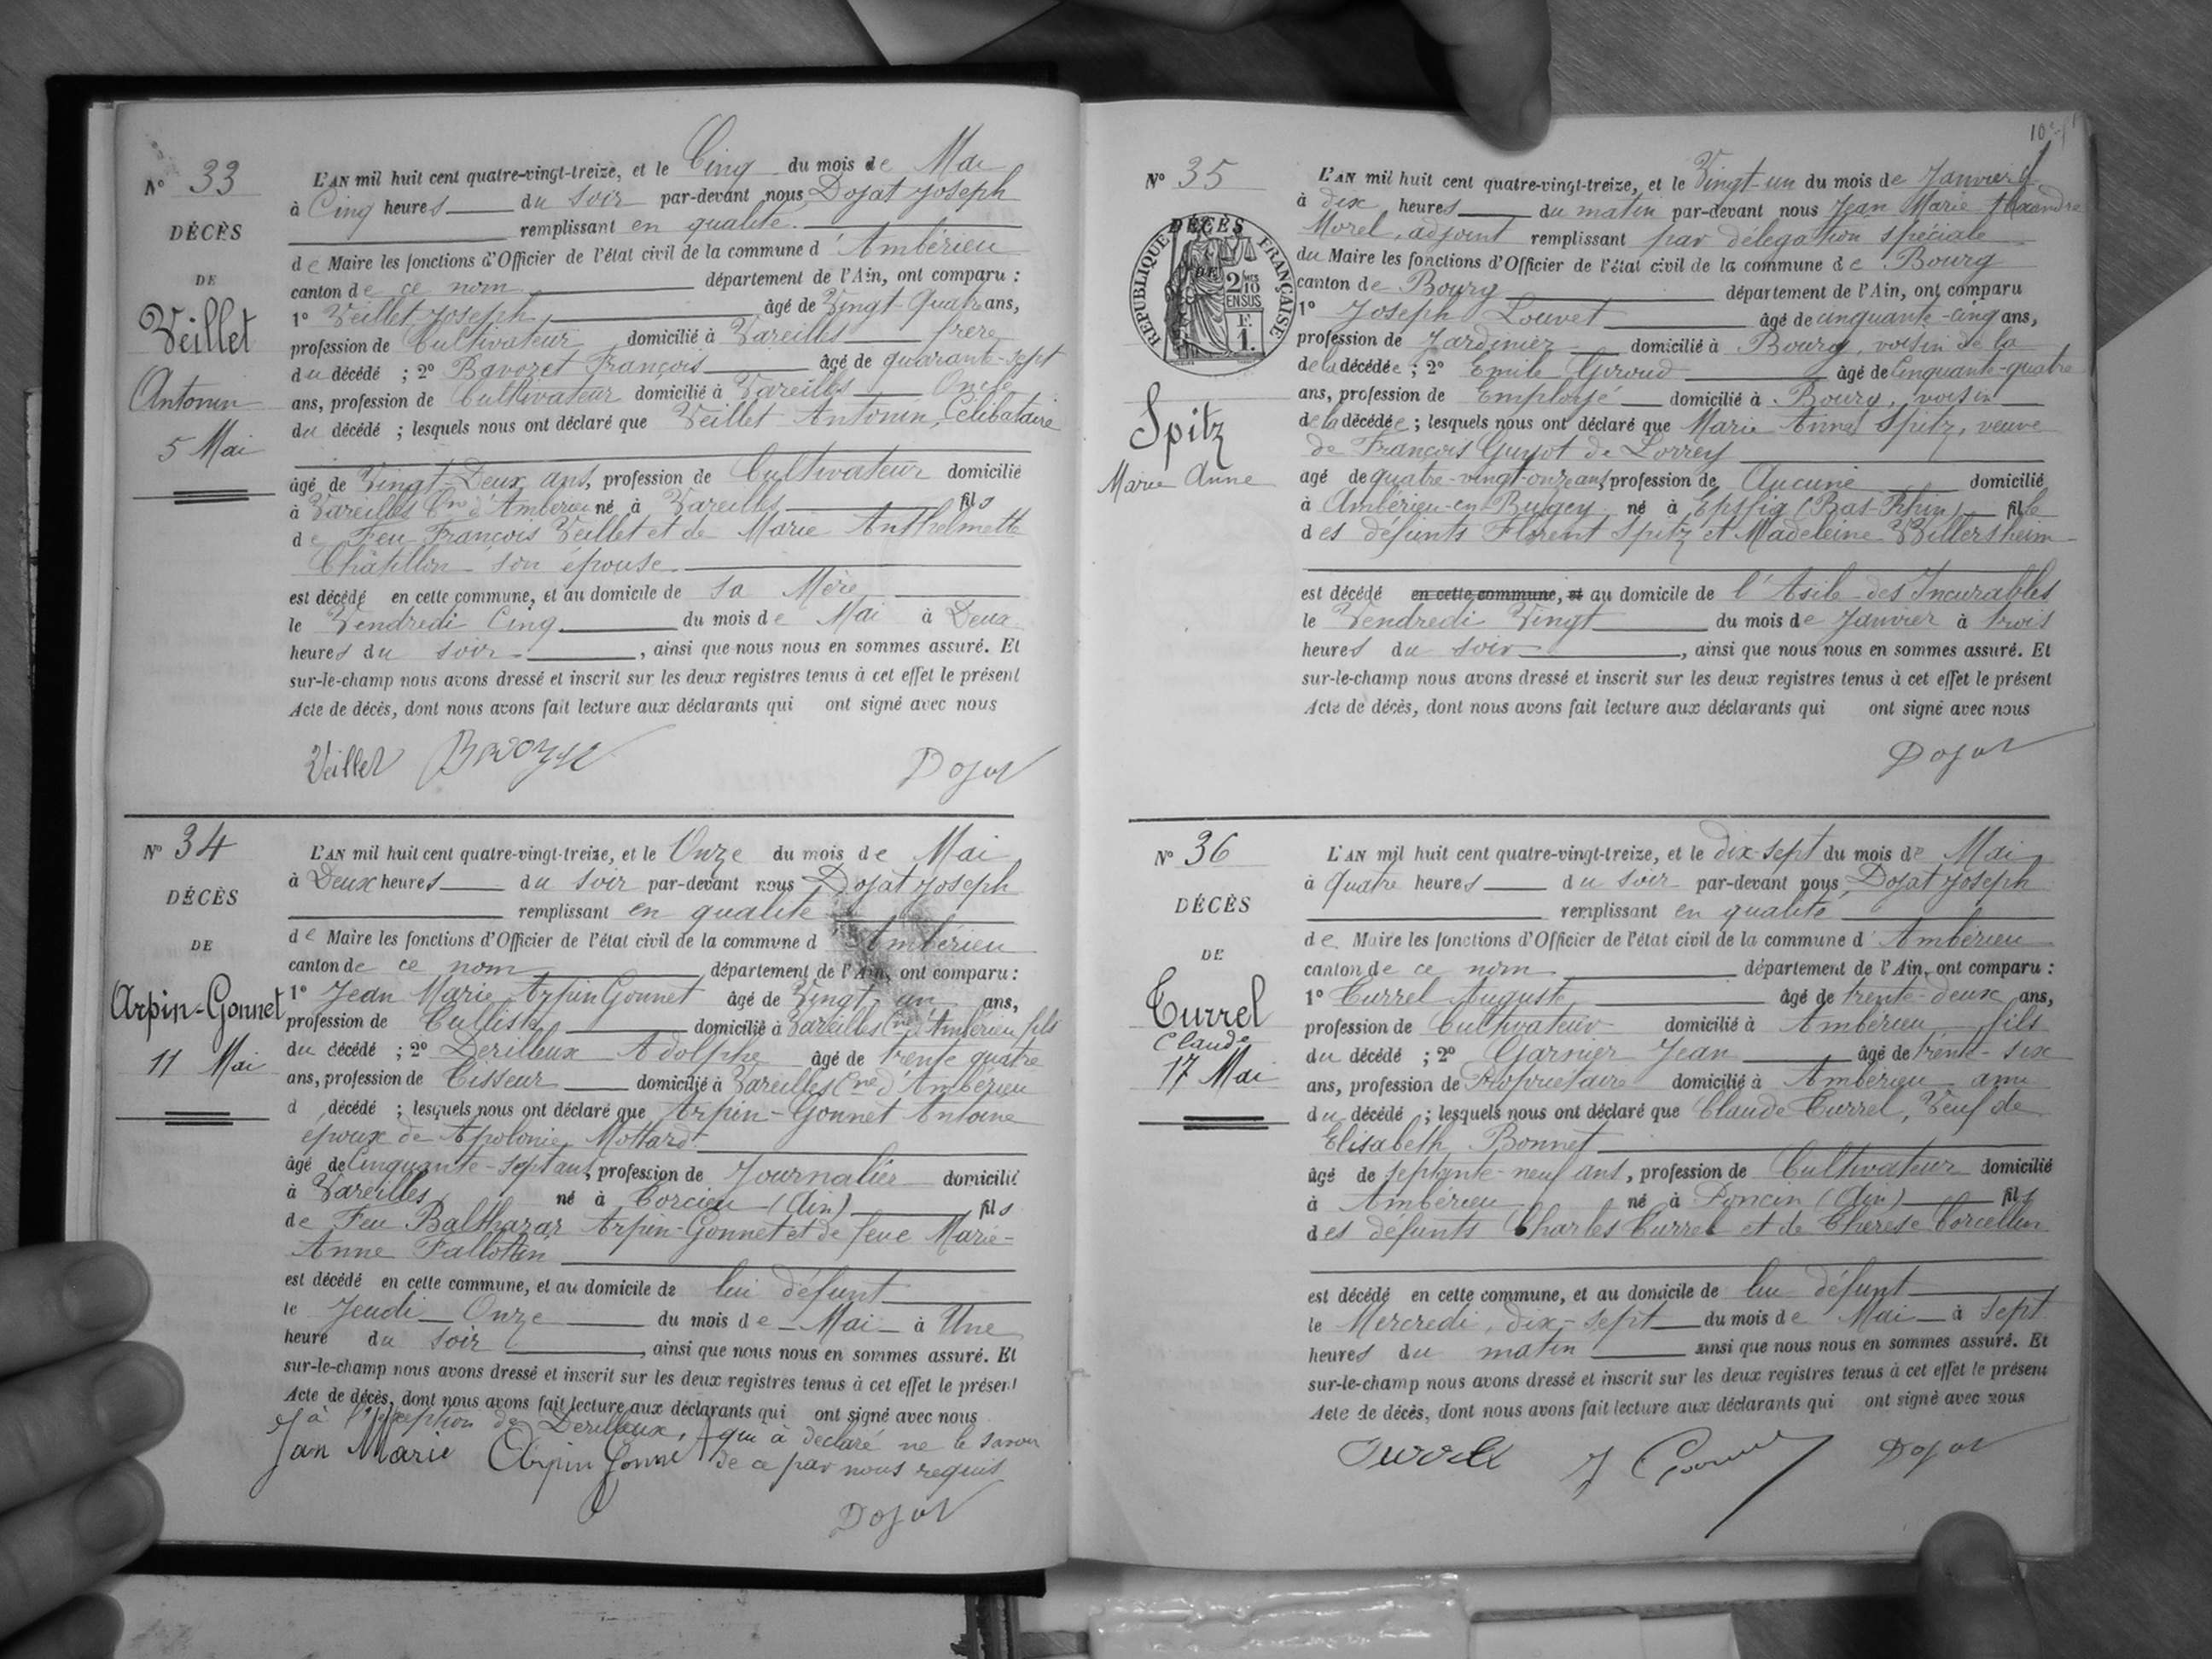 N° 33
DÉCÈS
DE
Veillet
Antonin
5 Mai
L'AN mil huit cent quatre-vingt-treize, et le Cinq du mois de Mai
à Cinq heures du soir par-devant nous Dojat Joseph
remplissant en qualité
de Maire les fonctions d'Officier de l'état civil de la commune d'Ambérieu
canton de ce nom département de l'Ain, ont comparu :
1° Veillet Joseph âgé de Vingt-Quatre ans,
profession de Cultivateur domicilié à Vareilles frère
du décédé ; 2° Bavozet François âgé de quarante-sept
ans, profession de Cultivateur domicilié à Vareilles Oncle
du décédé ; lesquels nous ont déclaré que Veillet Antonin, Célibataire
âgé de Vingt-Deux ans, profession de Cultivateur domicilié
à Vareilles Cne d'Ambérieu né à Vareilles fils
de Feu François Veillet et de Marie Anthelmette
Châtillon son épouse
est décédé en cette commune, et au domicile de sa Mère
le Vendredi Cinq du mois de Mai à Deux
heures du soir, ainsi que nous nous en sommes assuré. Et
sur-le-champ nous avons dressé et inscrit sur les deux registres tenus à cet effet le présent
Acte de décès, dont nous avons fait lecture aux déclarants qui ont signé avec nous
Veillet Dojat
N° 34
DÉCÈS
DE
Arpin-Gonnet
11 Mai
L'AN mil huit cent quatre-vingt-treize, et le Onze du mois de Mai
à Deux heures du soir par-devant nous Dojat Joseph
remplissant en qualité
de Maire les fonctions d'Officier de l'état civil de la commune d'Ambérieu
canton de ce nom département de l'Ain, ont comparu :
1° Jean Marie Arpin Gonnet âgé de Vingt-un ans,
profession de domicilié à Vareilles Cne d'Ambérieu fils
du décédé ; 2° Derilleux Adolphe âgé de trente quatre
ans, profession de Tisseur domicilié à Vareilles Cne d'Ambérieu
d décédé ; lesquels nous ont déclaré que Arpin-Gonnet Antoine
époux de Apolonie Mottard
âgé de Cinquante-sept ans, profession de Journalier domicilié
à Vareilles né à Torcieu (Ain) fils
de Feu Balthazar Arpin-Gonnet et de feue Marie-
Anne Fallotin
est décédé en cette commune, et au domicile de lui défunt
le Jeudi Onze du mois de Mai à Une
heure du soir, ainsi que nous nous en sommes assuré. Et
sur-le-champ nous avons dressé et inscrit sur les deux registres tenus à cet effet le présent
Acte de décès, dont nous avons fait lecture aux déclarants qui ont signé avec nous
à l'exception de Derilleux, qui à déclaré ne le savoir
de ce par nous requis
Jan Marie Arpin Gonnet
Dojat
N° 35
DÉCÈS
DE
RÉPUBLIQUE FRANÇAISE
2/10 EN SUS
F. 1.
Spitz
Marie Anne
L'AN mil huit cent quatre-vingt-treize, et le Vingt-un du mois de Janvier
à dix heures du matin par-devant nous Jean Marie Alexandre
Morel, adjoint remplissant par délégation spéciale
du Maire les fonctions d'Officier de l'état civil de la commune de Bourg
canton de Bourg département de l'Ain, ont comparu
1° Joseph Louvet âgé de cinquante-cinq ans,
profession de Jardinier domicilié à Bourg, voisin de la
de la décédée ; 2° Emile Giroud âgé de Cinquante-quatre
ans, profession de Employé domicilié à Bourg, voisin
de la décédée ; lesquels nous ont déclaré que Marie Anne Spitz, veuve
de François Guyot de Lorrey
agé de quatre-vingt-onze ans, profession de Aucune domicilié
à Ambérieu-en-Bugey né à Epsfig (Bas-Rhin) fille
des défunts Florent Spitz et Madeleine Willersheim
est décédé en cette commune, et au domicile de l'Asile des Incurables
le Vendredi Vingt du mois de Janvier à trois
heures du soir, ainsi que nous nous en sommes assuré. Et
sur-le-champ nous avons dressé et inscrit sur les deux registres tenus à cet effet le présent
Acte de décès, dont nous avons fait lecture aux déclarants qui ont signé avec nous
Dojat
N° 36
DÉCÈS
DE
Turrel
Claude
17 Mai
L'AN mil huit cent quatre-vingt-treize, et le dix-sept du mois de Mai
à quatre heures du soir par-devant nous Dojat Joseph
remplissant en qualité
de Maire les fonctions d'Officier de l'état civil de la commune d'Ambérieu
canton de ce nom département de l'Ain, ont comparu :
1° Turrel Auguste âgé de trente-deux ans,
profession de Cultivateur domicilié à Ambérieu fils
du décédé ; 2° Garnier Jean âgé de trente-six
ans, profession de Propriétaire domicilié à Ambérieu ami
du décédé ; lesquels nous ont déclaré que Claude Turrel, Veuf de
Elisabeth Bonnet
âgé de septante-neuf ans, profession de Cultivateur domicilié
à Ambérieu né à Poncin (Ain) fils
des défunts Charles Turrel et de Thérèse Corcellin
est décédé en cette commune, et au domicile de lui défunt
le Mercredi, dix-sept du mois de Mai à sept
heures du matin ainsi que nous nous en sommes assuré. Et
sur-le-champ nous avons dressé et inscrit sur les deux registres tenus à cet effet le présent
Acte de décès, dont nous avons fait lecture aux déclarants qui ont signé avec nous
Turrel Dojat